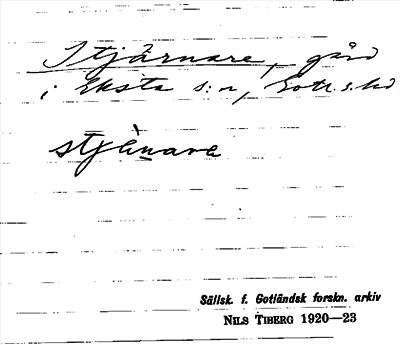 Stjärnare, gård
i Eksta s:n, Gotl. s.hd
stjä̀nare
Sällsk. f. Gotländsk forskn. arkiv
NILS TIBERG 1920—23